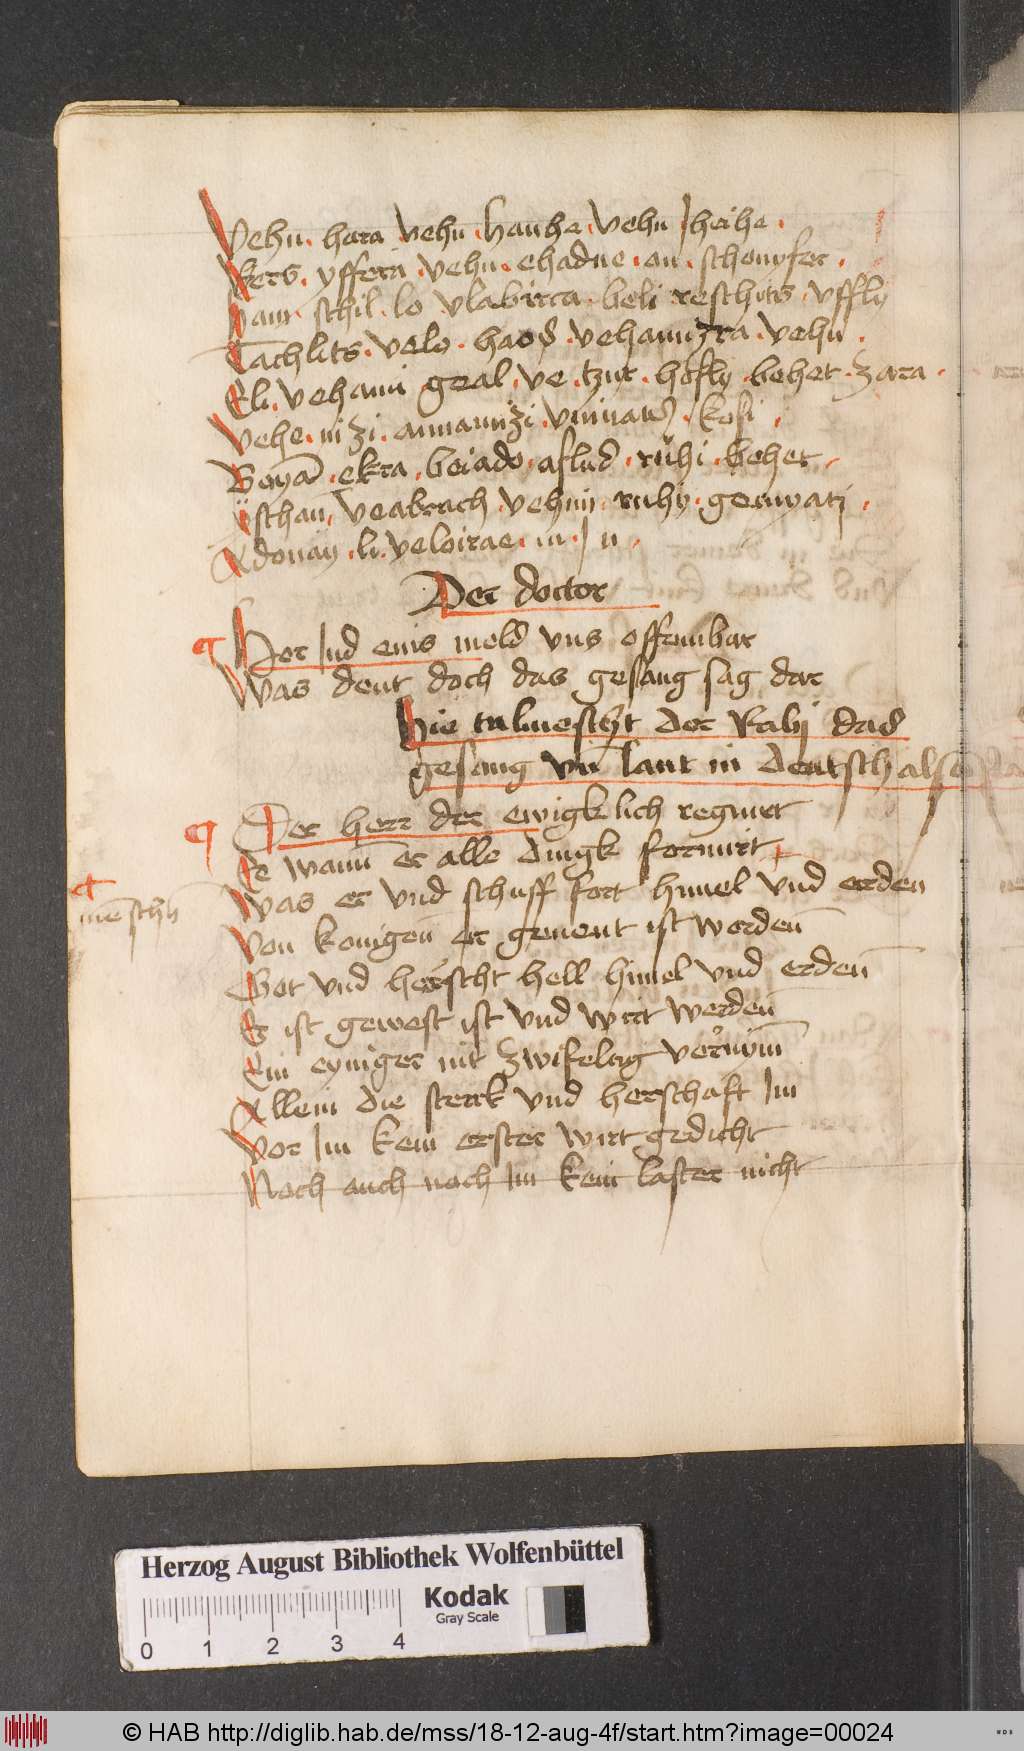 Vehu · hara vehu · hauhe · vehu Jheihe ·
kers · yffera · vehu · ehadne · en · schenyfer ·
ham · schil · lo vlabirra · beli reschits · vffly
Tachlits · velo · haos · vehamizra · vehu ·
Eli · vehami geal · ve · tzur · hefly · behet · zara ·
vehe · nizi · annanizi · vminatz · kosi ·
Boya · ekra · beiado · aflud · ruhi · behet ·
yschan · veabrach · vehim · ruhy · geniyatz ·
Adonay · li · veloirae · in · J n ·
Der doctor
Her Jud eins meld vns offennbar
Was deut doch das gesang sag dar
Hie tulmescht der Rabj das
gesang vn laut in deutsch also
Der herr der ewigklich regnirt
Ee wann er alle dingk formirt
menschn
Was er vnd schuff fort himel vnd erden
Von konigen er genent ist worden
Got vnd herscht hell himel vnd erden
Er ist gewest ist vnd wirt werden
Ein eyniger nit zwifeltig vernym
Allein die sterck vnd herschaft Jm
Vor Jm kein erster wirt gedicht
Noch auch noch Jm kein laster nicht
Herzog August Bibliothek Wolfenbüttel
Kodak
Gray Scale
0 1 2 3 4
© HAB http://diglib.hab.de/mss/18-12-aug-4f/start.htm?image=00024